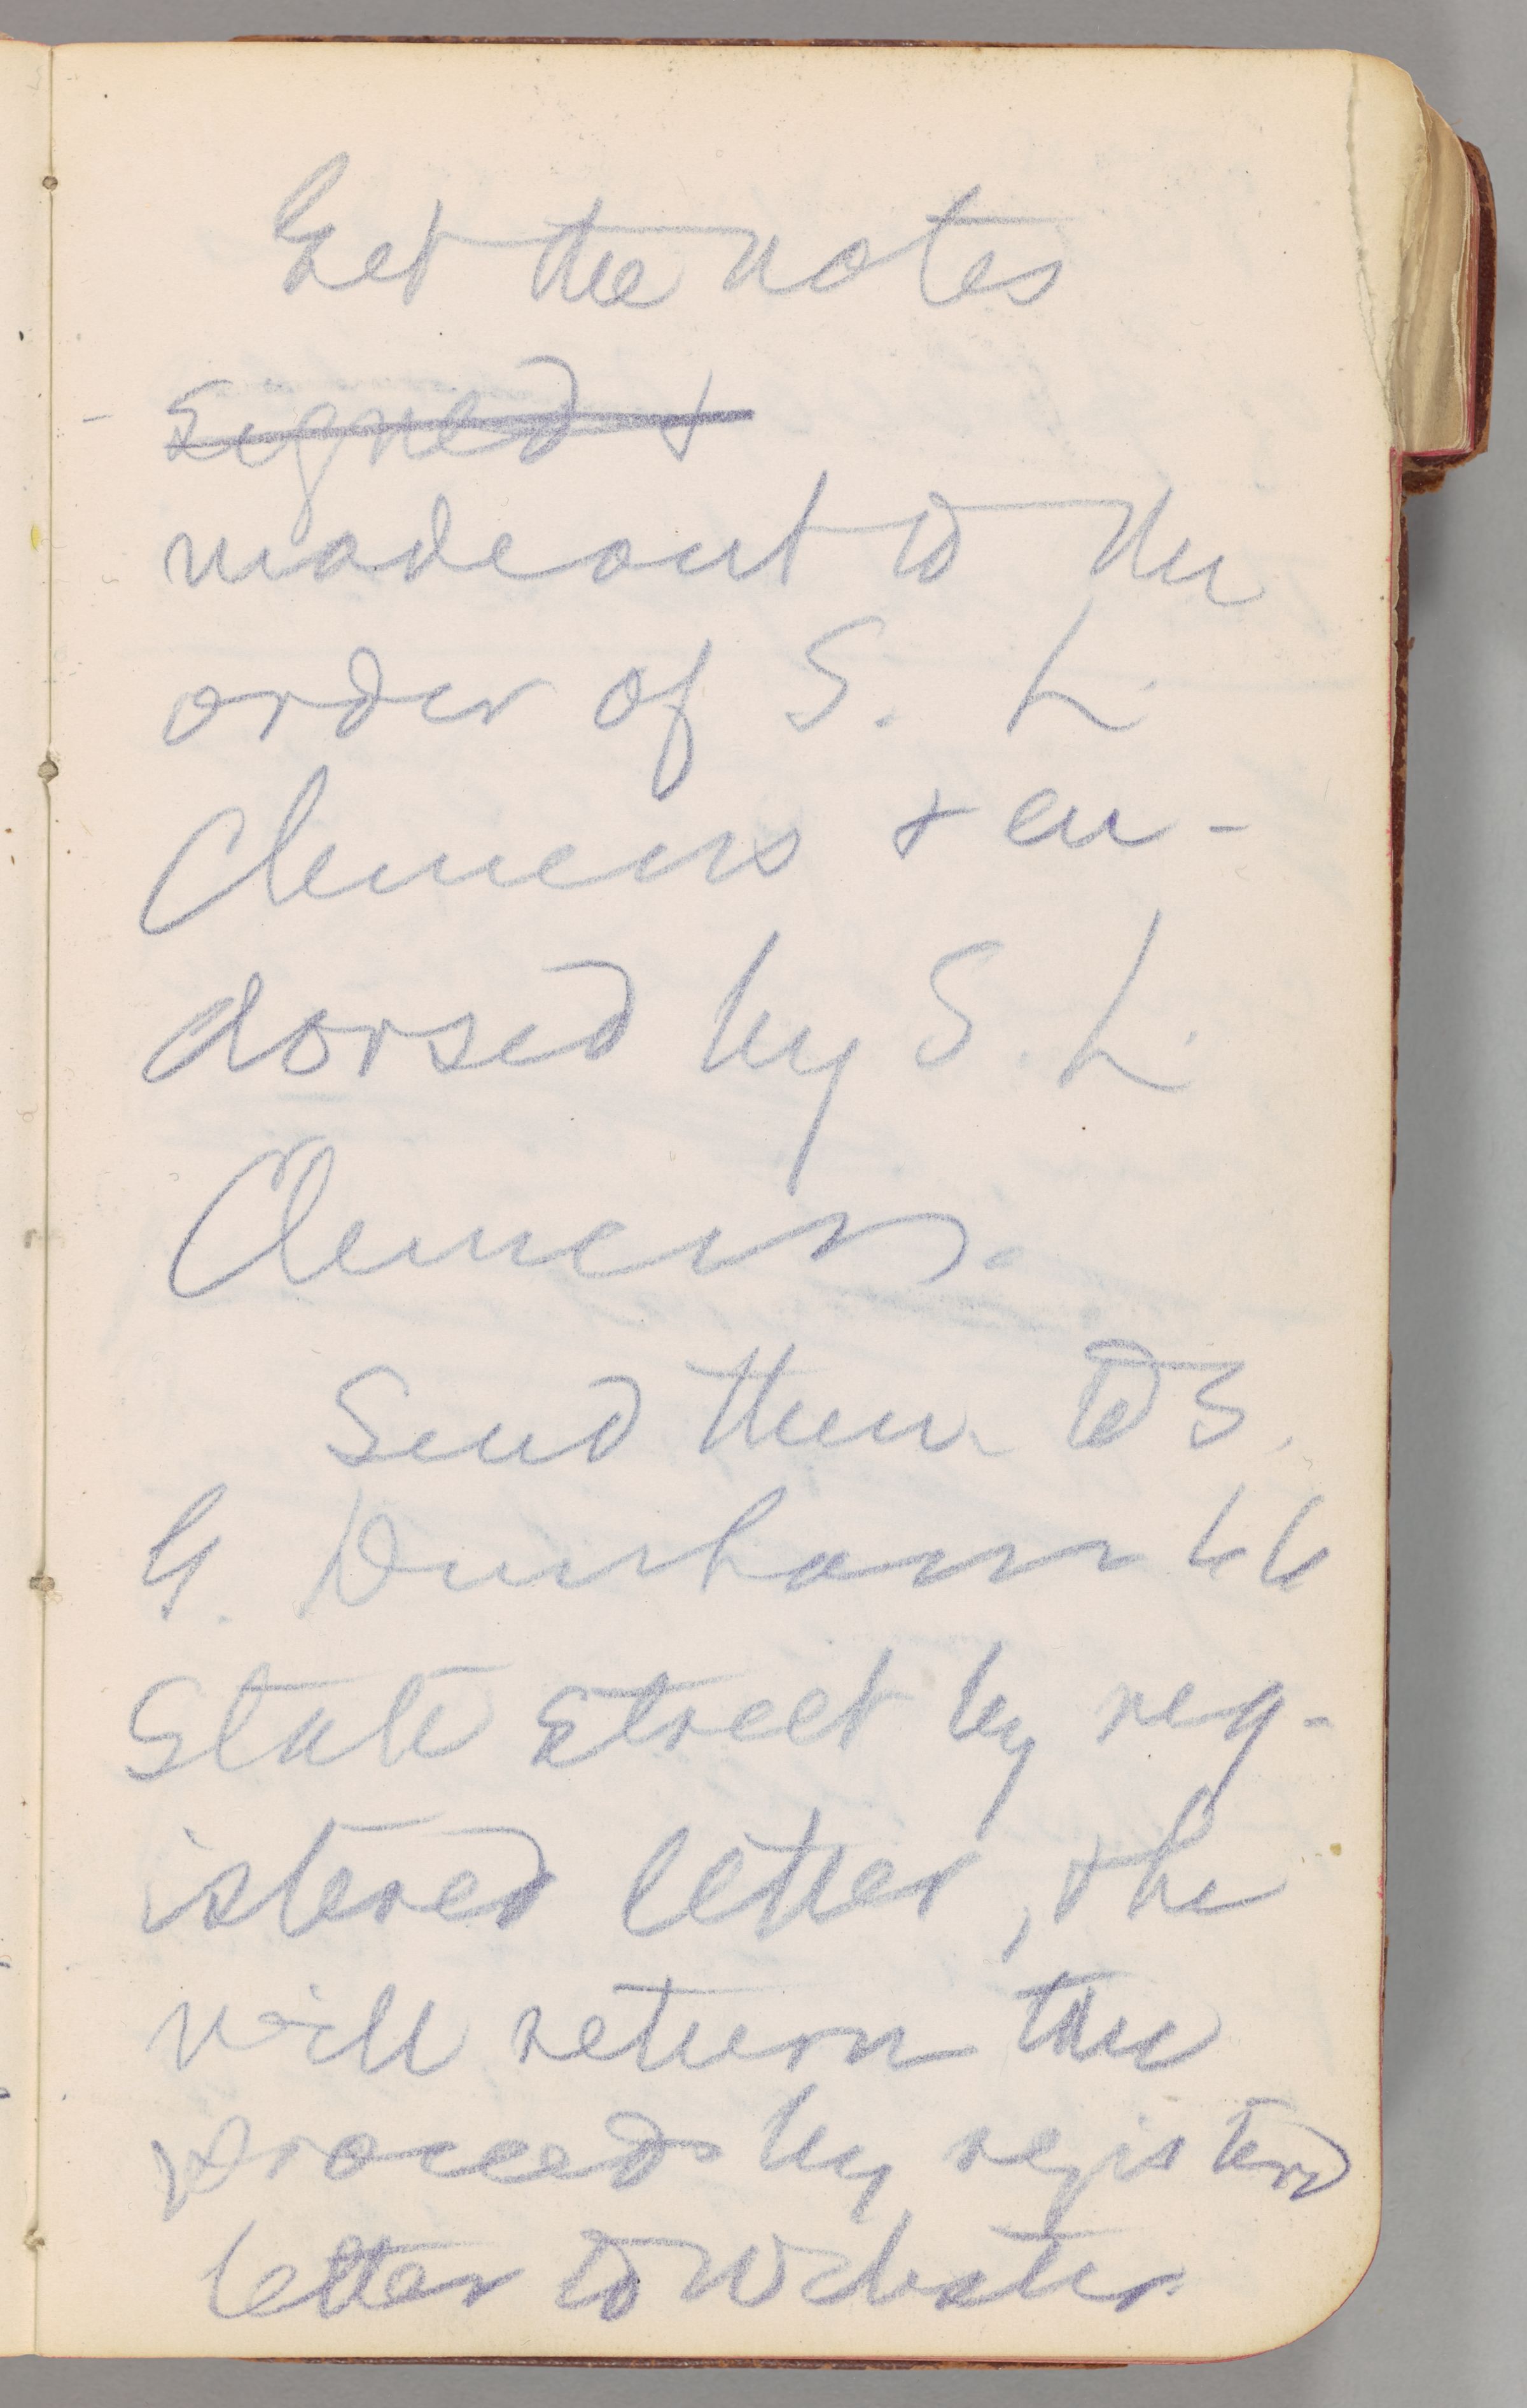 Get the notes
signed &
made out to the
order of S. L.
Clemens & en-
dorsed by S. L.
Clemens.
Send them to S.
G. Dunham 66
State Street by reg-
istered letter, & he
will return the
proceeds by registered
letter to Webster.